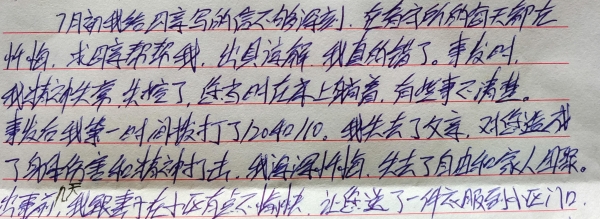 7月初我给母亲写的信不够深刻，在看守所的每天都在
忏悔，求母亲帮帮我，出具谅解，我真的错了。事发时，
我精神失常，失控了，您当时在床上躺着，有些事不清楚。
事发后我第一时间拨打了120和110。我失去了父亲，对您造成
了身体伤害和精神打击，我深深忏悔，失去了自由和家人团聚。
出事前几天，我跟妻子在小区有点不愉快，让您送了一件衣服到小区门口，